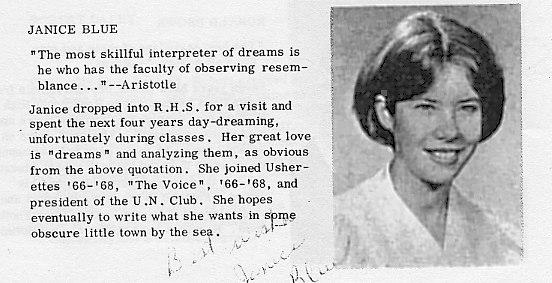 JANICE BLUE
"The most skillful interpreter of dreams is
he who has the faculty of observing resem-
blance..."--Aristotle
Janice dropped into R.H.S. for a visit and
spent the next four years day-dreaming,
unfortunately during classes. Her great love
is "dreams" and analyzing them, as obvious
from the above quotation. She joined Usher-
ettes '66-'68, "The Voice", '66-'68, and
president of the U.N. Club. She hopes
eventually to write what she wants in some
obscure little town by the sea.
Best wishes
Janice
Blue